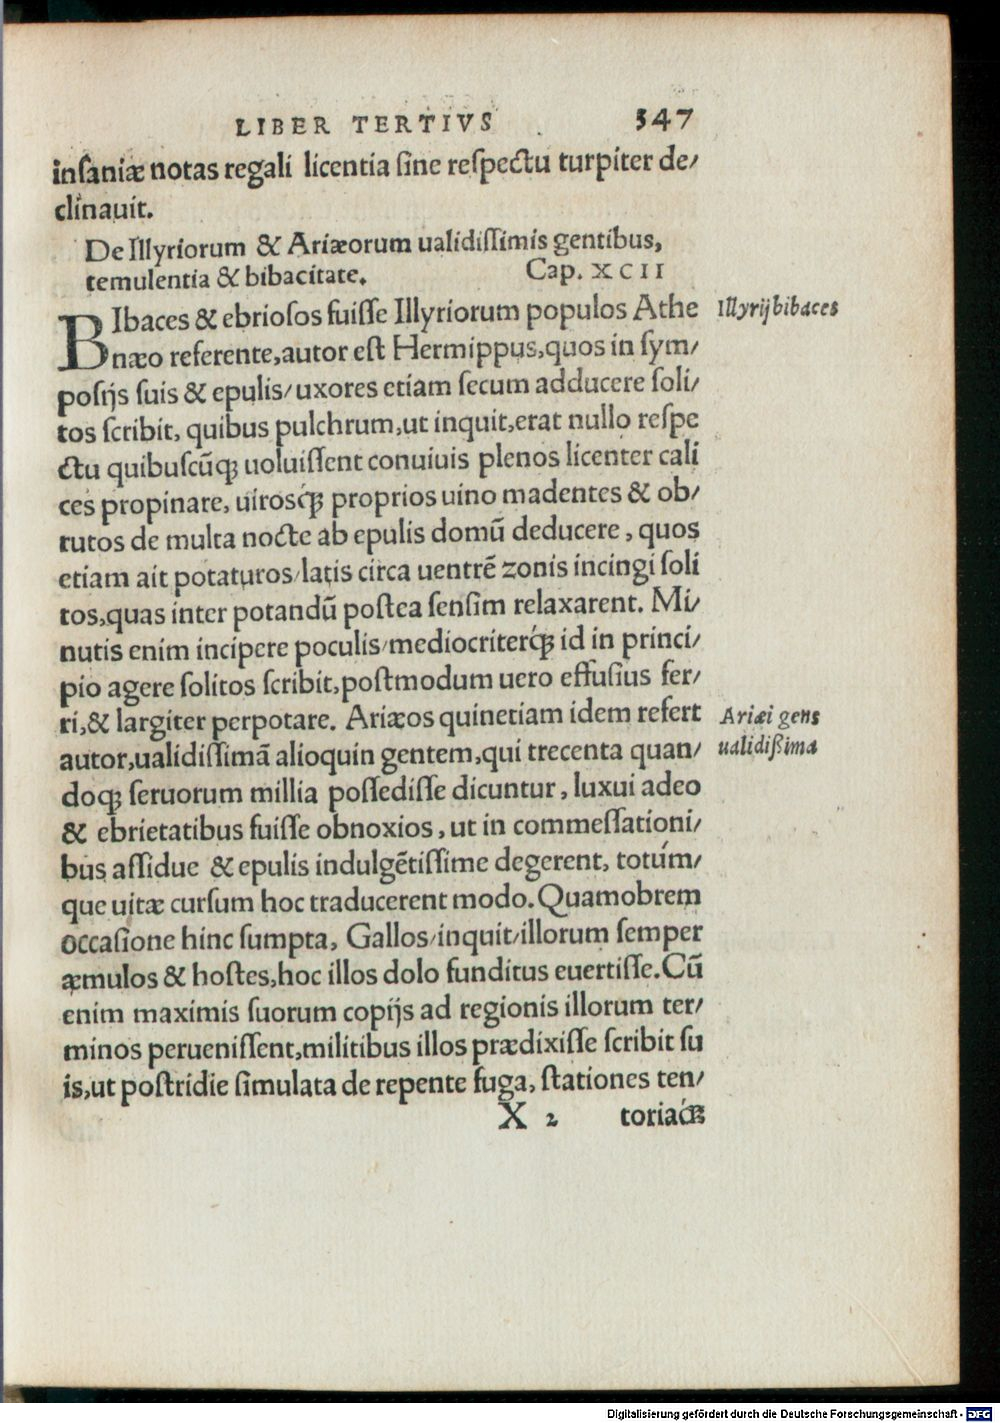 LIBER TERTIVS 347
inſaniæ notas regali licentia ſine reſpectu turpiter de/
clinauit.
De Illyriorum & Ariæorum ualidiſſimis gentibus,
temulentia & bibacitate. Cap. XCII
BIbaces & ebrioſos fuiſſe Illyriorum populos Athe
næo referente, autor eſt Hermippus, quos in ſym/
poſijs ſuis & epulis/ uxores etiam ſecum adducere ſoli/
tos ſcribit, quibus pulchrum, ut inquit, erat nullo reſpe
ctu quibuſcũqꝫ uoluiſſent conuiuis plenos licenter cali
ces propinare, uirosq́ꝫ proprios uino madentes & ob/
rutos de multa nocte ab epulis domũ deducere, quos
etiam ait potaturos/ latis circa uentrẽ zonis incingi ſoli
tos, quas inter potandũ poſtea ſenſim relaxarent. Mi/
nutis enim incipere poculis/ mediocriterq́ꝫ id in princi/
pio agere ſolitos ſcribit, poſtmodum uero effuſius fer/
ri, & largiter perpotare. Ariæos quinetiam idem refert
autor, ualidiſſimã alioquin gentem, qui trecenta quan/
doqꝫ ſeruorum millia poſſediſſe dicuntur, luxui adeo
& ebrietatibus fuiſſe obnoxios, ut in commeſſationi/
bus aſſidue & epulis indulgẽtiſſime degerent, totúm/
que uitæ curſum hoc traducerent modo. Quamobrem
occaſione hinc ſumpta, Gallos/ inquit/ illorum ſemper
æmulos & hoſtes, hoc illos dolo funditus euertiſſe. Cũ
enim maximis ſuorum copijs ad regionis illorum ter/
minos perueniſſent, militibus illos prædixiſſe ſcribit ſu
is, ut poſtridie ſimulata de repente fuga, ſtationes ten/
X 2 toriaq́ꝫ
Illyrij bibaces
Ariæi gens
ualidißima
Digitalisierung gefördert durch die Deutsche Forschungsgemeinschaft - DFG